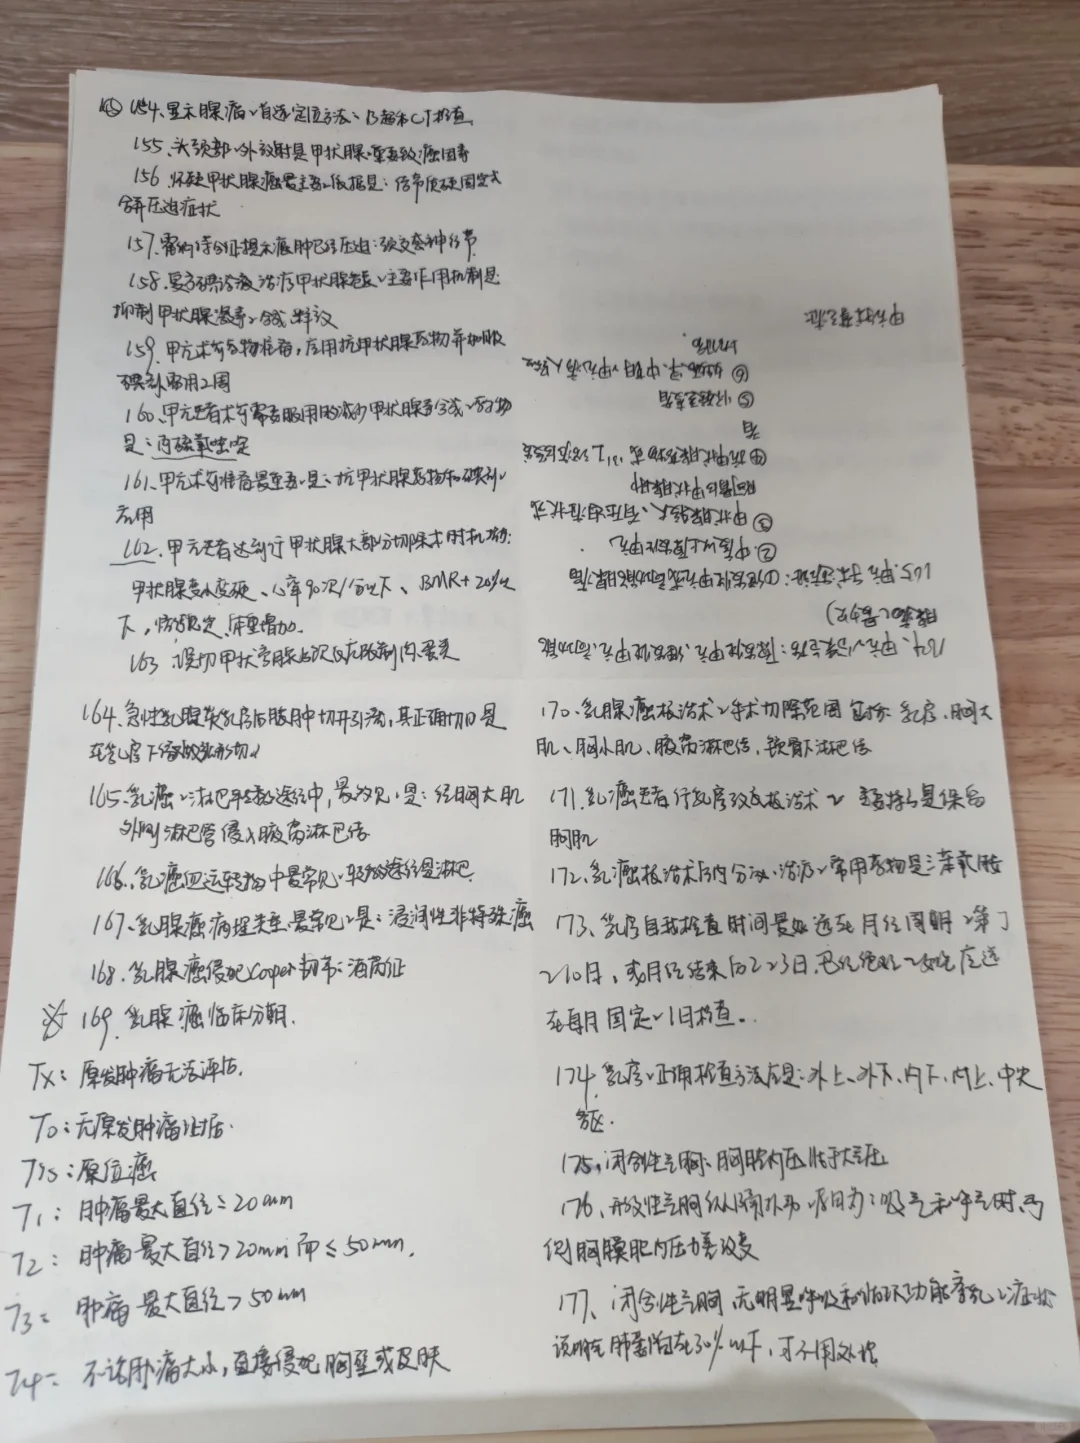 154、显示胰腺癌、首选定位方法、B超和CT检查
155、头颈部、外放射是甲状腺、重要致癌因素
156、怀疑甲状腺癌最主要、依据是：结节质硬固定或
合并压迫症状
157、霍纳综合征提示癌肿已经压迫：颈交感神经节
158、复方碘溶液治疗甲状腺危象、主要作用机制是
抑制甲状腺激素、合成 释放
159、甲亢术前药物准备，应用抗甲状腺药物并加服
碘剂需用2周
160、甲亢患者术前需要服用的减少甲状腺素合成、药物
是：丙硫氧嘧啶
161、甲亢术前准备最重要、是：抗甲状腺药物和碘剂、
应用
162、甲亢患者达到行甲状腺大部分切除术时机为：
甲状腺变小变硬、心率90次/分以下、BMR+20%以
下，情绪稳定、体重增加。
163 误切甲状旁腺 限制肉、蛋类
164、急性乳腺炎乳房后脓肿切开引流，其正确切口是
在乳房下缘做弧形切口
165、乳癌、淋巴转移途径中，最常见、是：经胸大肌
外侧淋巴管侵入腋窝淋巴结
166、乳癌血运转移中最常见、转移途径是淋巴
167、乳腺癌病理类型最常见、是：浸润性非特殊癌
168、乳腺癌侵犯Cooper韧带：酒窝征
169、乳腺癌临床分期.
Tx：原发肿瘤无法评估.
T0：无原发肿瘤证据.
Tis：原位癌
T1：肿瘤最大直径≤20mm
T2：肿瘤最大直径>20mm而≤50mm.
T3：肿瘤最大直径>50mm
T4：不论肿瘤大小，直接侵犯胸壁或皮肤
164、甲亢、分类包括：原发性甲亢、继发性甲亢、高功能
腺瘤（最少见）
165、甲亢手术适应证：①继发性甲亢或高功能腺瘤
②中度以上原发甲亢.
③甲状腺较大、有压迫症状或
胸骨后甲状腺肿
④抗甲状腺药物或 131I 治疗后复发
者
⑤
⑥妊娠早、中期、甲亢病人
170、乳腺癌根治术、手术切除范围包括：乳房、胸大
肌、胸小肌、腋窝淋巴结、锁骨下淋巴结
171、乳癌患者行乳房改良根治术、主要特点是保留
胸肌
172、乳癌根治术后内分泌、治疗、常用药物是三苯氧胺
173、乳房自我检查时间最好选在月经周期、第7
~10日，或月经结束后2~3日，已经绝经、妇女应选
在每月固定、1日检查。
174、乳房、正确检查方法应是：外上、外下、内下、内上、中央
各区.
175、闭合性气胸、胸腔内压低于大气压
176、开放性气胸纵隔扑动 原因为：吸气和呼气时，两
侧胸膜腔内压力差改变
177、闭合性气胸 无明显呼吸和循环功能紊乱、症状
说明 肺萎陷在30%以下，可不用处理